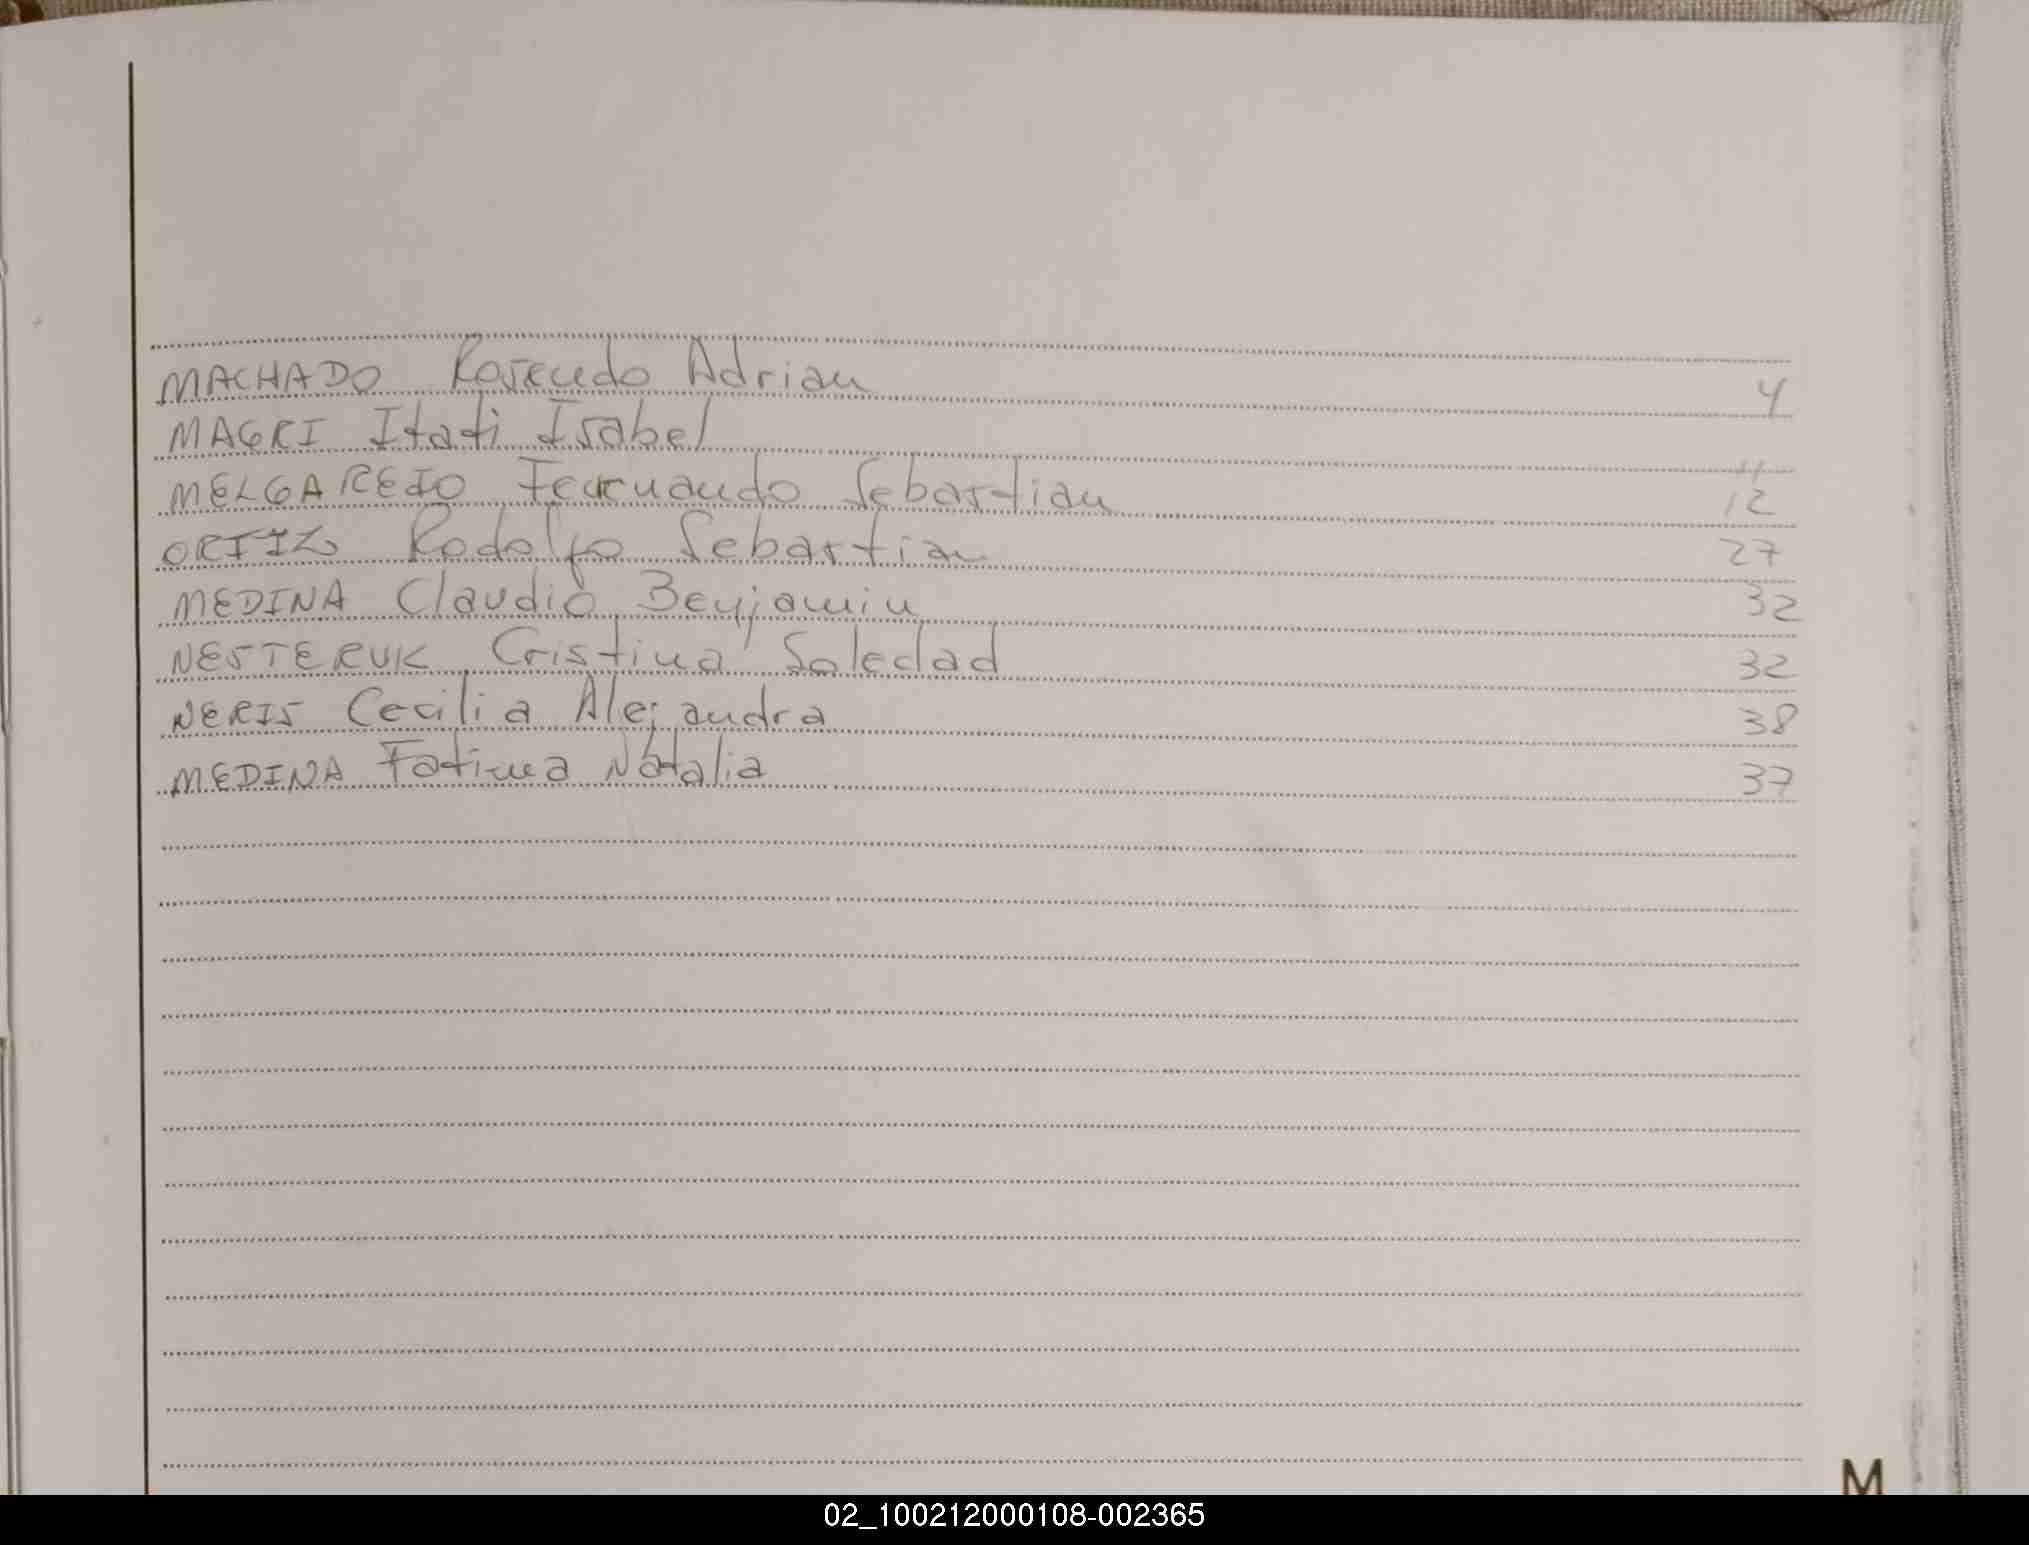 MACHADO Rosendo Adrian 4
MAGRI Itati Isabel 11
MELGAREJO Fernando Sebastian 12
ORTIZ Rodolfo Sebastian 27
MEDINA Claudio Benjamin 32
NESTERUK Cristina Soledad 32
NERIS Cecilia Alejandra 38
MEDINA Fatima Natalia 37
M
02_100212000108-002365